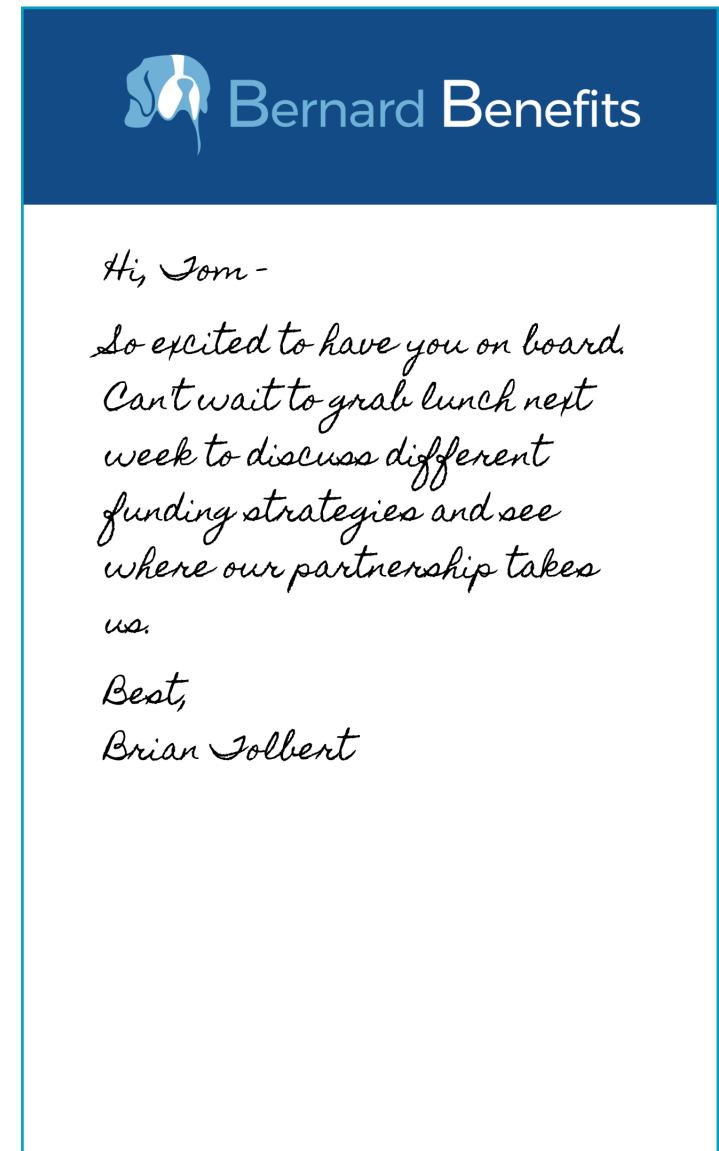 Bernard Benefits
Hi, Tom -
So excited to have you on board.
Can't wait to grab lunch next
week to discuss different
funding strategies and see
where our partnership takes
us.
Best,
Brian Tolbert